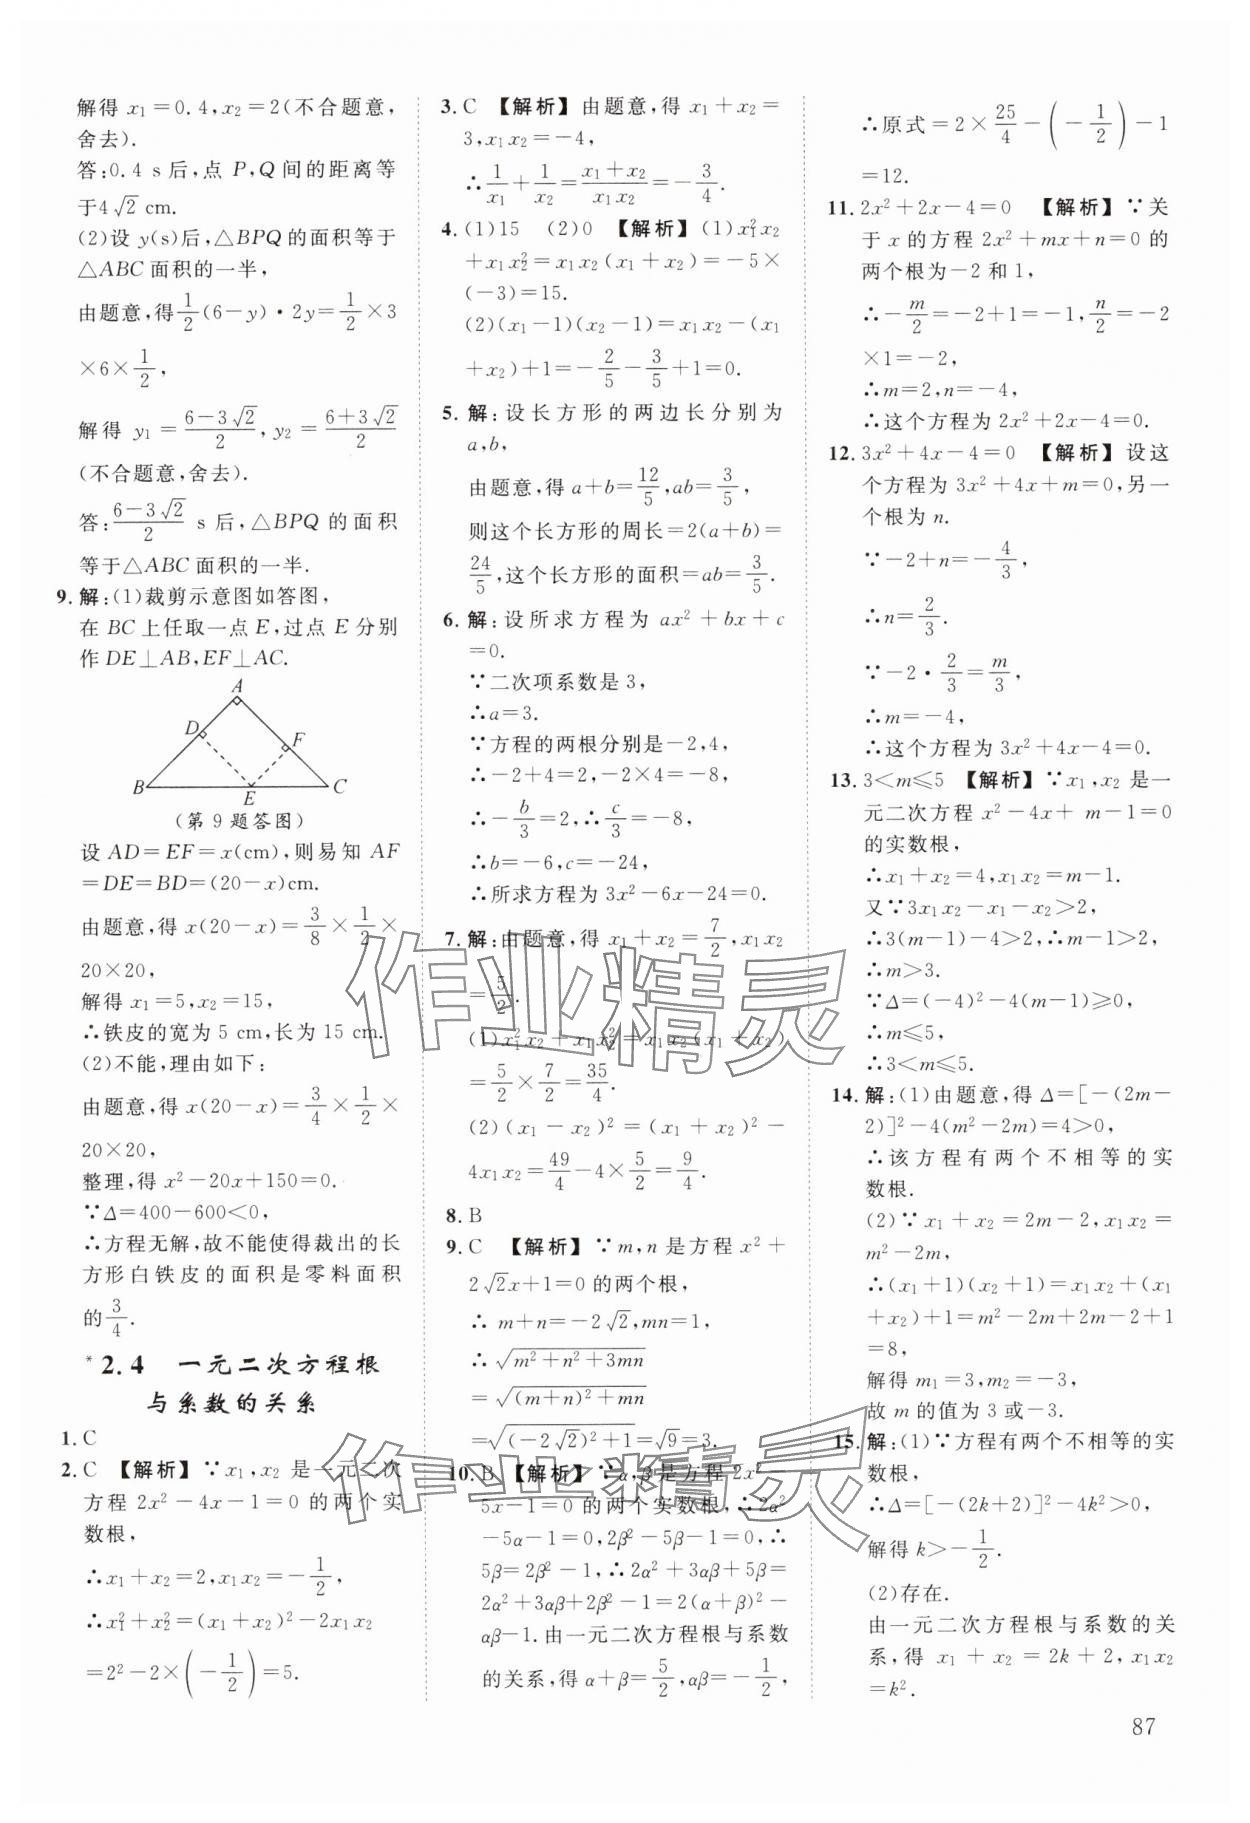 解得 x₁=0.4,x₂=2(不合题意,
舍去).
答:0.4 s后,点 P,Q 间的距离等
于4√2 cm.
(2)设 y(s)后,△BPQ 的面积等于
△ABC 面积的一半,
由题意,得1/2(6-y)·2y=1/2×3
×6×1/2,
解得 y₁=(6-3√2)/2,y₂=(6+3√2)/2
(不合题意,舍去).
答:(6-3√2)/2 s后,△BPQ 的面积
等于△ABC 面积的一半.
9.解:(1)裁剪示意图如答图,
在 BC 上任取一点 E,过点 E 分别
作 DE⊥AB,EF⊥AC.
A
D
F
B
E
C
(第9题答图)
设 AD=EF=x(cm),则易知 AF
=DE=BD=(20-x)cm.
由题意,得 x(20-x)=3/8×1/2×
20×20,
解得 x₁=5,x₂=15,
∴铁皮的宽为 5 cm,长为 15 cm.
(2)不能,理由如下:
由题意,得 x(20-x)=3/4×1/2×
20×20,
整理,得 x²-20x+150=0.
∵Δ=400-600<0,
∴方程无解,故不能使得裁出的长
方形白铁皮的面积是零料面积
的3/4.
*2.4 一元二次方程根
与系数的关系
1.C
2.C 【解析】∵x₁,x₂ 是一元二次
方程 2x²-4x-1=0 的两个实
数根,
∴x₁+x₂=2,x₁x₂=-1/2,
∴x₁²+x₂²=(x₁+x₂)²-2x₁x₂
=2²-2×(-1/2)=5.
3.C 【解析】由题意,得 x₁+x₂=
3,x₁x₂=-4,
∴1/x₁+1/x₂=(x₁+x₂)/(x₁x₂)=-3/4.
4.(1)15 (2)0 【解析】(1)x₁²x₂
+x₁x₂²=x₁x₂(x₁+x₂)=-5×
(-3)=15.
(2)(x₁-1)(x₂-1)=x₁x₂-(x₁
+x₂)+1=-2/5-3/5+1=0.
5.解:设长方形的两边长分别为
a,b,
由题意,得 a+b=12/5,ab=3/5,
则这个长方形的周长=2(a+b)=
24/5,这个长方形的面积=ab=3/5.
6.解:设所求方程为 ax²+bx+c
=0.
∵二次项系数是 3,
∴a=3.
∵方程的两根分别是-2,4,
∴-2+4=2,-2×4=-8,
∴-b/3=2,∴c/3=-8,
∴b=-6,c=-24,
∴所求方程为 3x²-6x-24=0.
7.解:由题意,得 x₁+x₂=7/2,x₁x₂
=5/2.
(1)x₁²x₂+x₁x₂²=x₁x₂(x₁+x₂)
=5/2×7/2=35/4.
(2)(x₁-x₂)²=(x₁+x₂)²-
4x₁x₂=49/4-4×5/2=9/4.
8.B
9.C 【解析】∵m,n 是方程 x²+
2√2x+1=0 的两个根,
∴m+n=-2√2,mn=1,
∴√(m²+n²+3mn)
=√((m+n)²+mn)
=√((-2√2)²+1)=√9=3.
10.B 【解析】∵α,β是方程 2x²-
5x-1=0 的两个实数根,∴2α²
-5α-1=0,2β²-5β-1=0,∴
5β=2β²-1,∴2α²+3αβ+5β=
2α²+3αβ+2β²-1=2(α+β)²-
αβ-1.由一元二次方程根与系数
的关系,得 α+β=5/2,αβ=-1/2,
∴原式=2×25/4-(-1/2)-1
=12.
11.2x²+2x-4=0 【解析】∵关
于 x 的方程 2x²+mx+n=0 的
两个根为-2 和 1,
∴-m/2=-2+1=-1,n/2=-2
×1=-2,
∴m=2,n=-4,
∴这个方程为 2x²+2x-4=0.
12.3x²+4x-4=0 【解析】设这
个方程为 3x²+4x+m=0,另一
个根为 n.
∵-2+n=-4/3,
∴n=2/3.
∵-2·2/3=m/3,
∴m=-4,
∴这个方程为 3x²+4x-4=0.
13.3<m≤5 【解析】∵x₁,x₂ 是一
元二次方程 x²-4x+ m-1=0
的实数根,
∴x₁+x₂=4,x₁x₂=m-1.
又∵3x₁x₂-x₁-x₂>2,
∴3(m-1)-4>2,
∴m>3.
∵Δ=(-4)²-4(m-1)≥0,
∴m≤5,
∴3<m≤5.
14.解:(1)由题意,得 Δ=[-(2m-
2)]²-4(m²-2m)=4>0,
∴该方程有两个不相等的实
数根.
(2)∵x₁+x₂=2m-2,x₁x₂=
m²-2m,
∴(x₁+1)(x₂+1)=x₁x₂+(x₁
+x₂)+1=m²-2m+2m-2+1
=8,
解得 m₁=3,m₂=-3,
故 m 的值为 3 或-3.
15.解:(1)∵方程有两个不相等的实
数根,
∴Δ=[-(2k+2)]²-4k²>0,
解得 k>-1/2.
(2)存在.
由一元二次方程根与系数的关
系,得 x₁+x₂=2k+2,x₁x₂
=k².
87
作业精灵
作业精灵